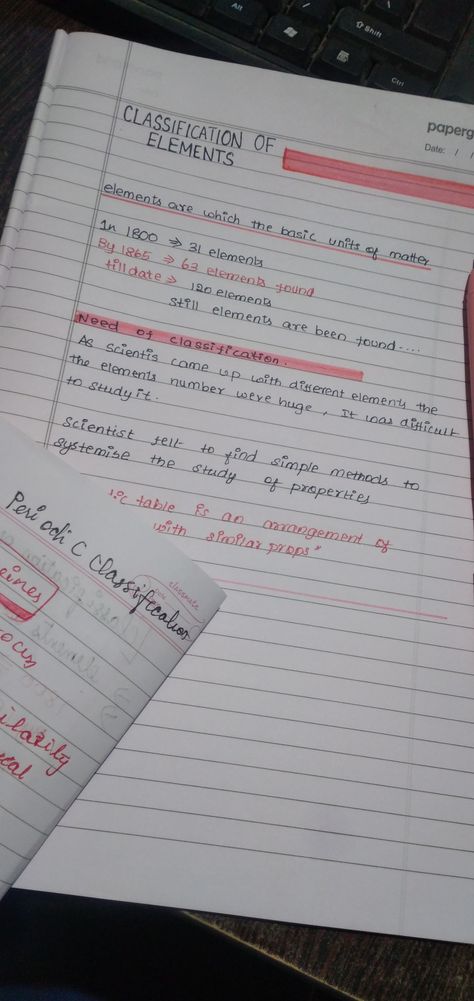 Alt
⇧ Shift
Ctrl
paperg
Date: / /
CLASSIFICATION OF
ELEMENTS
elements are which the basic units of matter
In 1800 ⇒ 31 elements
By 1865 ⇒ 63 elements found
till date ⇒ 120 elements
still elements are been found....
Need of classification.
As Scientis came up with different elements the
the elements number were huge, It was difficult
to study it.
Scientist felt to find simple methods to
systemise the study of properties
ic table is an arrangement of
with similar props"
Periodic Classification
eines
ocus
ilarily